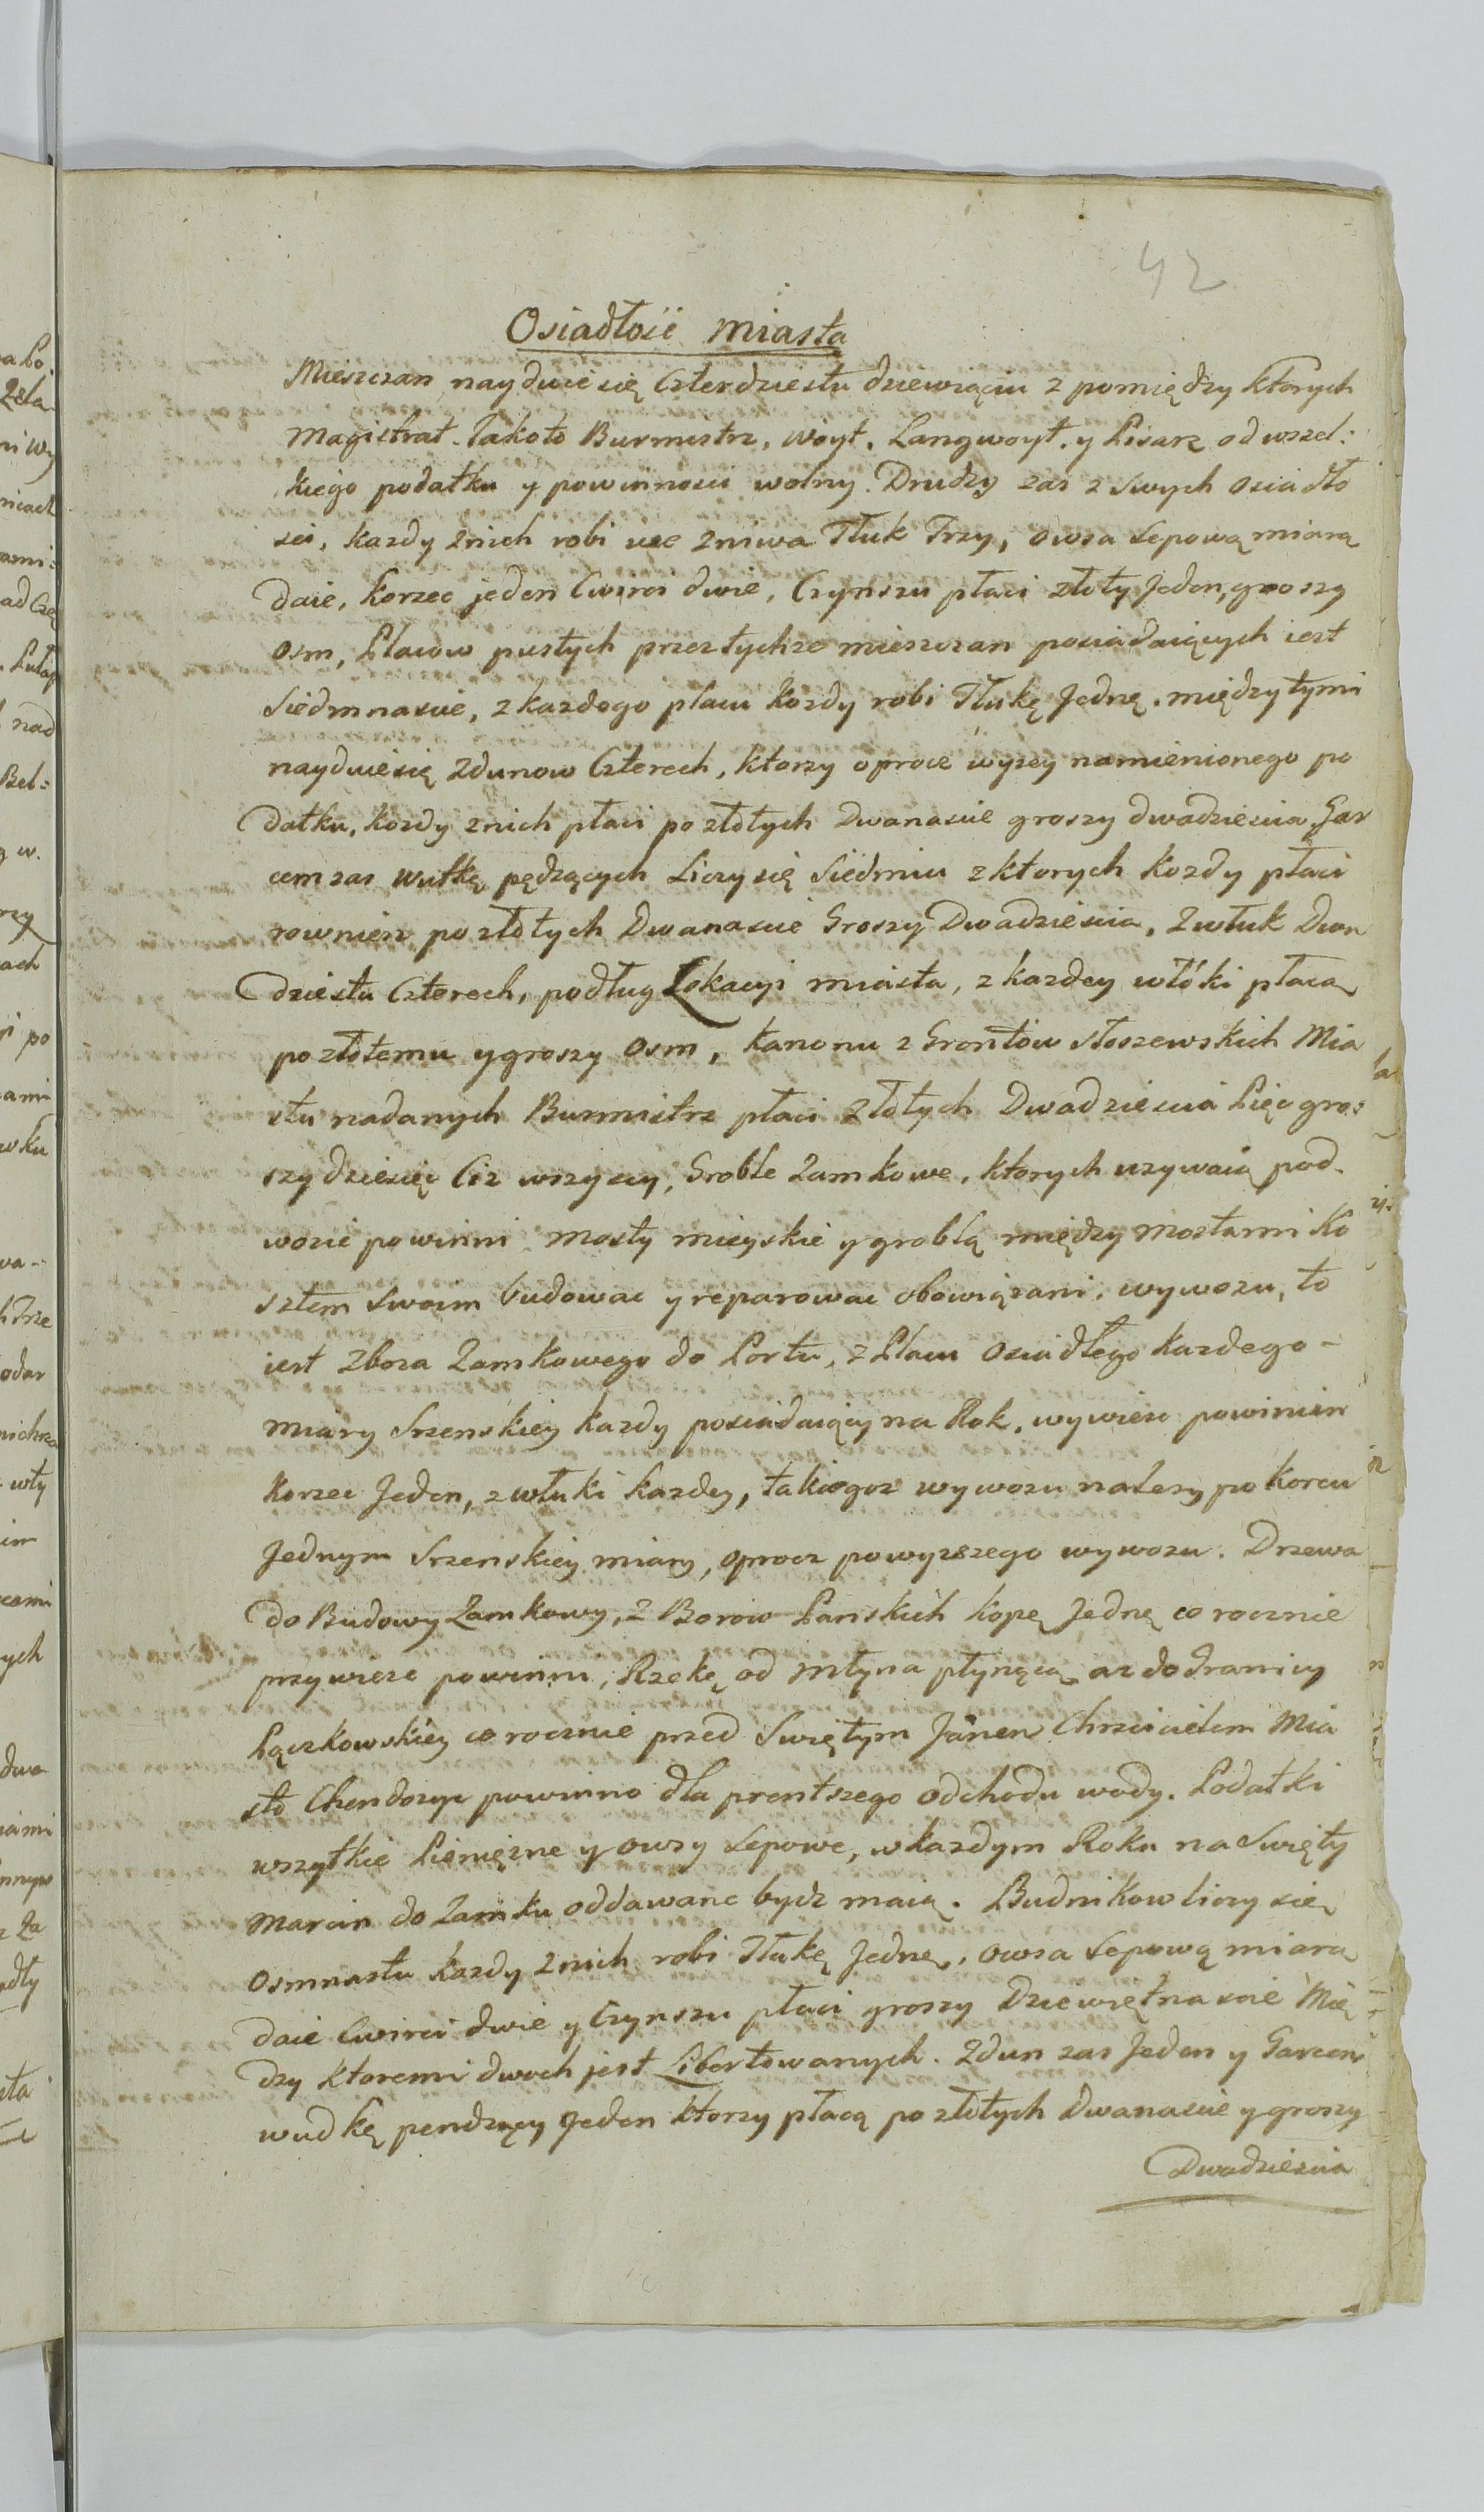 42
Osiadłość miasta
Mieszczan nayduie się Czterdziestu dziewiąciu z pomiędzy ktorych
Magistrat. Jakoto Burmistrz, Woyt, Langwoyt, y Pisarz od wszel:
kiego podatku y powinnosci wolny. Drudzy zas z swych osiadło
sci, kazdy znich robi we zniwa Tłuk Trzy, owsa Sepową miarą
daie, Korzec jeden Cwirci dwie, Czynszu płaci złoty Jeden, groszy
osm, Placow pustych przez tychze mieszczan posiadaiących iest
Siedmnascie, z kazdego placu kozdy robi Tłukę Jednę. między tymi
nayduie się Zdunow Czterech, ktorzy oprocz wyzey namienionego po
datku, kozdy znich płaci po złotych Dwanascie groszy dwadziescia, Gar
cem zas wutkę pędzących Liczy się Siedmiu z ktorych kozdy płaci
rownież po złotych Dwanascie Groszy Dwadziescia, Zwłuk Dwu
dziestu Czterech, podług Lokacyi miasta, z kazdey włóki płacą
po złotemu y groszy osm, Kanonu z Grontow Stoszewskich Mia
stu nadanych Burmistrz płaci złotych Dwadziescia Pięc gro:
szy dziesięc Ciz wszyscy, Groble Zamkowe, ktorych uzywaią pod-
wozic powinni mosty mieyskie y groblą między mostami Ko
sztem swoim budowac y reparowac obowiązani, wywozu, to
iest zboza Zamkowego do Portu, z Placu osiadłego kazdego -
miary Srzenskiey kazdy posiadaiący na Rok, wywiesc powinien
Korzec Jeden, z włuki kazdey, takiegoz wywozu nalezy po korcu
Jednym Srzenskiey miary, oprocz powyzszego wywozu. Drzewa
do Budowy Zamkowy, z Borow Panskich kopę Jednę co rocznie
przywiesc powinni, Rzekę od Młyna płynącą az do Granicy
Pączkowskiey co rocznie przed Swiętym Janem Chrzcicielem Mia
sto Chendozyc powinno dla prentszego odchodu wody. Podatki
wszytkie Pieniężne y owsy Sepowe, w kazdym Roku na Swięty
Marcin do Zamku oddawane bydz maią. Budnikow liczy się
Osmnastu kazdy znich robi Tłukę Jednę, owsa Sepową miarą
daie Cwirci dwie y Czynszu płaci groszy Dziewiętnascie Mię
dzy ktoremi dwoch jest Libertowanych. Zdun zas Jeden y Garcem
wudkę pendzący Jeden ktorzy płacą po złotych Dwanascie y groszy
Dwadziescia